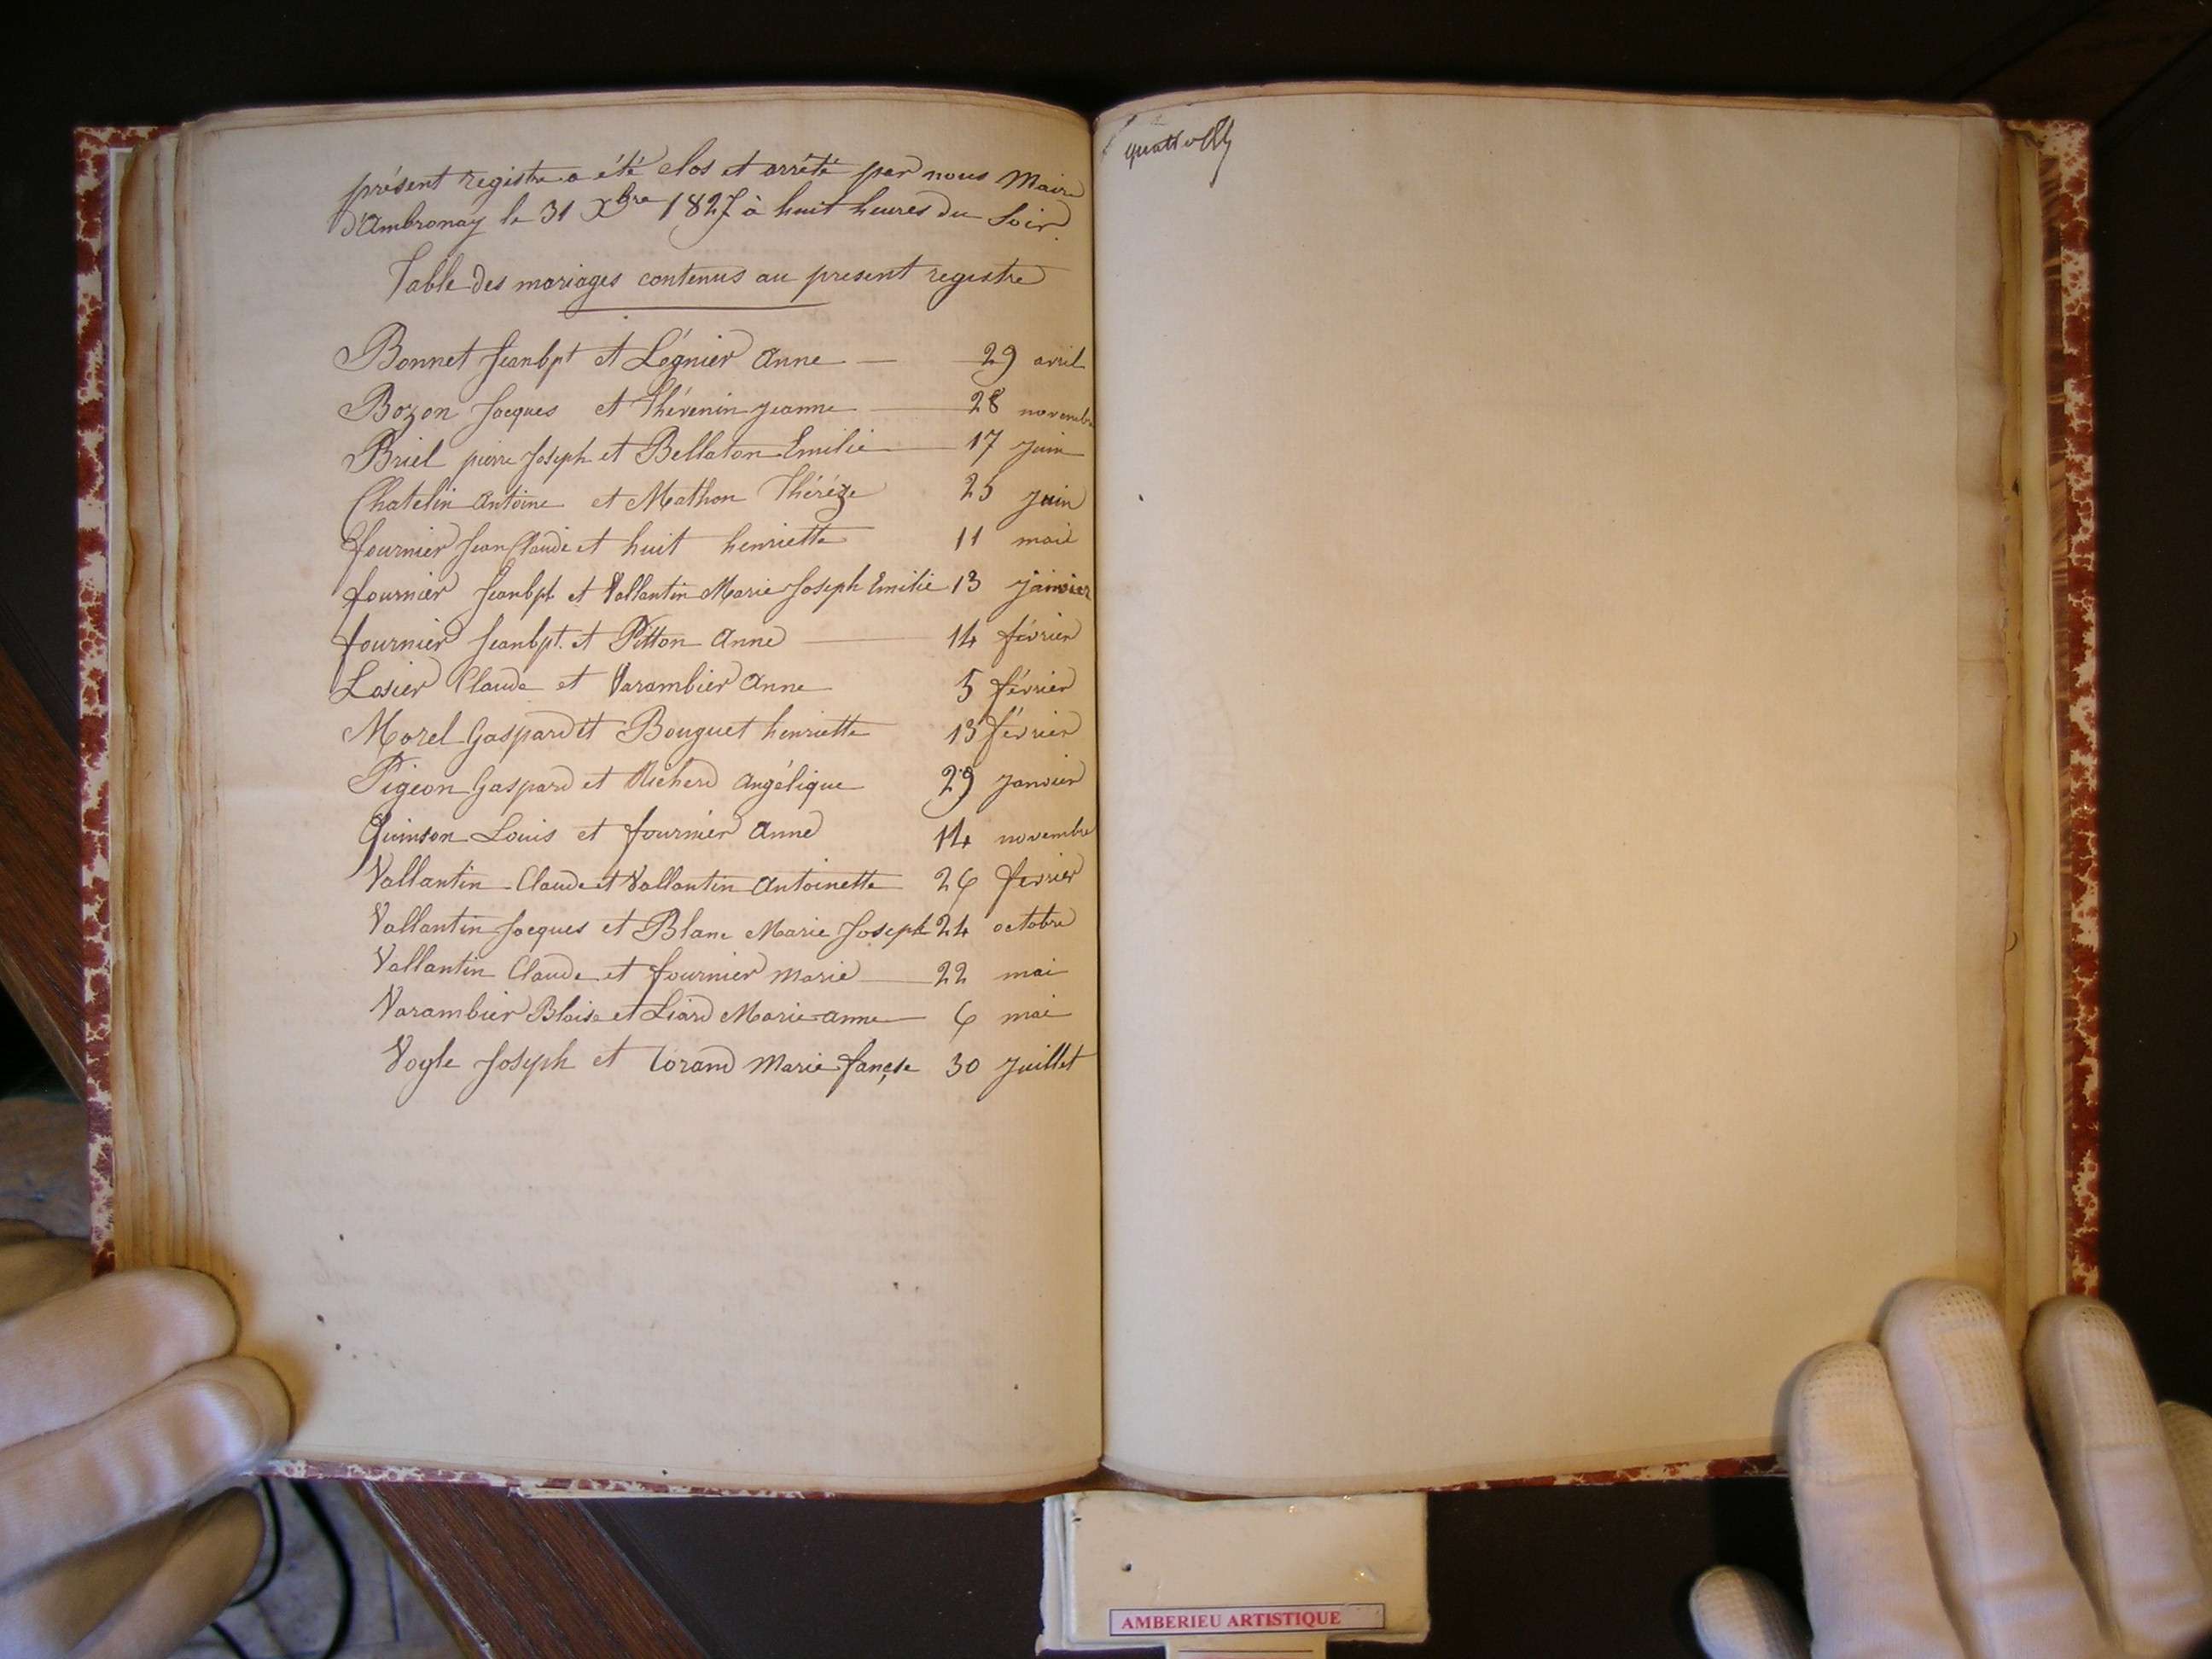 présent registre a été clos et arrêté par nous Maire
d'Ambronay le 31 Xbre 1827 à huit heures du Soir.
Table des mariages contenus au present registre
Bonnet Jeanbpt et Légnier Anne — 29 avril
Bozon Jacques et Thévenin jeanne — 28 novembre
Briel pierre Joseph et Bellaton Emilie — 17 juin
Chatelin Antoine et Mathon Thérèze 25 juin
fournier Jean Claude et huit henriette 11 mai
fournier Jeanbpt et Vallantin Marie Joseph Emilie 13 janvier
fournier Jeanbpt. et Pitton Anne — 14 février
Losier Claude et Varambier Anne 5 février
Morel Gaspard et Bouguet henriette 13 février
Pigeon Gaspard et Richerd Angélique 29 janvier
Quinson Louis et fournier Anne 14 novembre
Vallantin Claude et Vallantin Antoinette 26 fevrier
Vallantin Jacques et Blanc Marie Joseph 24 octobre
Vallantin Claude et fournier marie — 22 mai
Varambier Blaise et Liard Marie anne — 6 mai
Vogle Joseph et Corand Marie fançse 30 juillet
AMBERIEU ARTISTIQUE